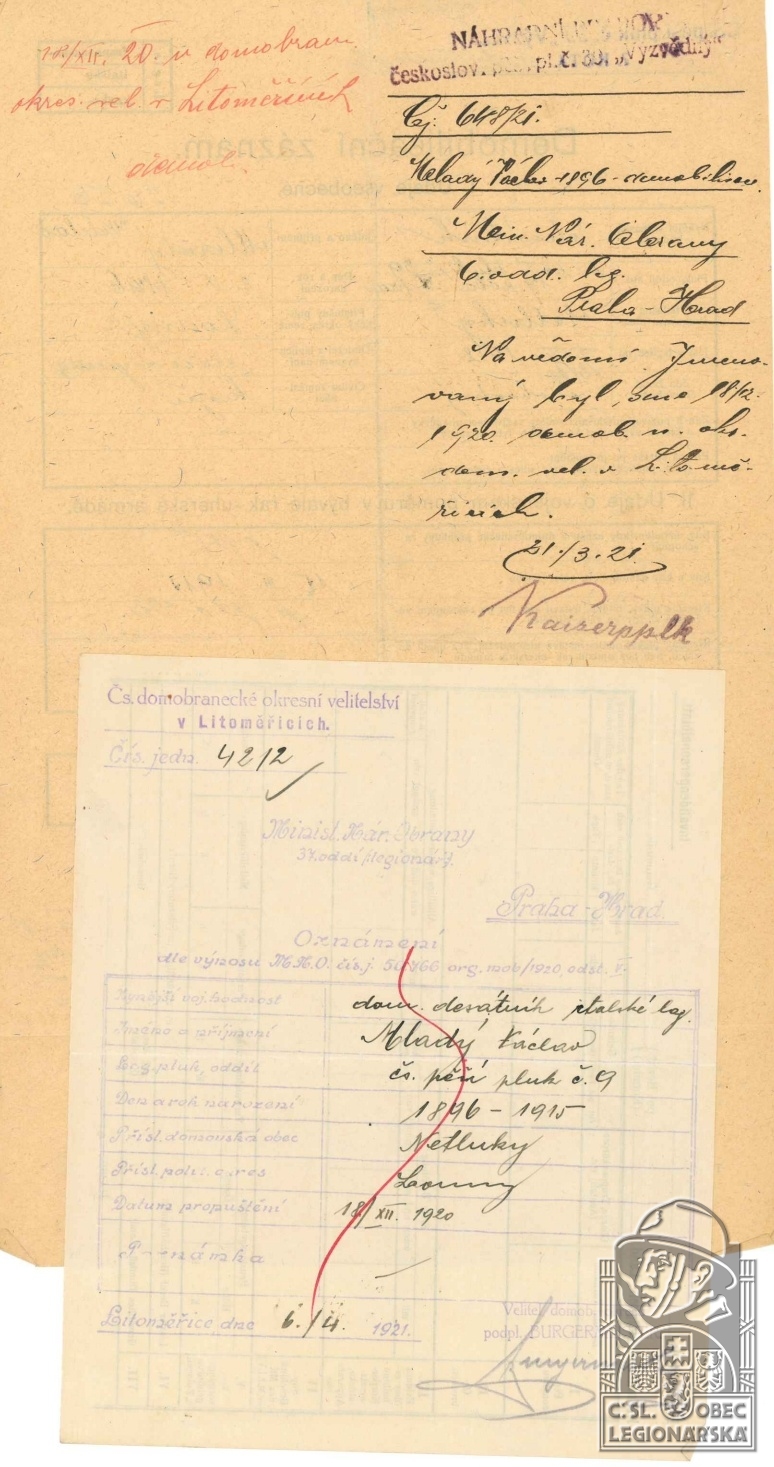 18/XII. 20. u domobran.
okres. vel. v Litoměřicích
demob.
NÁHRADNÍ
českoslov. pěš. pl. č. 39. „Výzvědný"
Čj. 648/21.
Mladý Václav 1896 - demobilisov.
Min. Nár. Obrany
6. odd. leg.
Praha - Hrad
Na vědomí. Jmeno-
vaný byl dne 18/12.
1920 demob. u okr.
dom. vel. v Litomě-
řicích.
21./3. 21.
Kaiser pplk
Čs. domobranecké okresní velitelství
v Litoměřicích.
Čís. jedn. 4212
Minist. Nár. Obrany
37. oddíl /legionář./
Praha - Hrad.
Oznámení
dle výnosu M.N.O. čís.j. 50466 org. mob/1920, odst. V.
Nynější voj. hodnost dom. desátník italské leg.
Jméno a příjmení Mladý Václav
Leg. pluk, oddíl čs. pěší pluk č. 9
Den a rok narození 1896 - 1915
Přísl. domovská obec Netluky
Přísl. polit. okres Louny
Datum propuštění 18/XII. 1920
Poznámka —
Litoměřice, dne 6./4. 1921.
Velitel domob.
podpl. BURGER
Č.SL. OBEC
LEGIONÁŘSKÁ